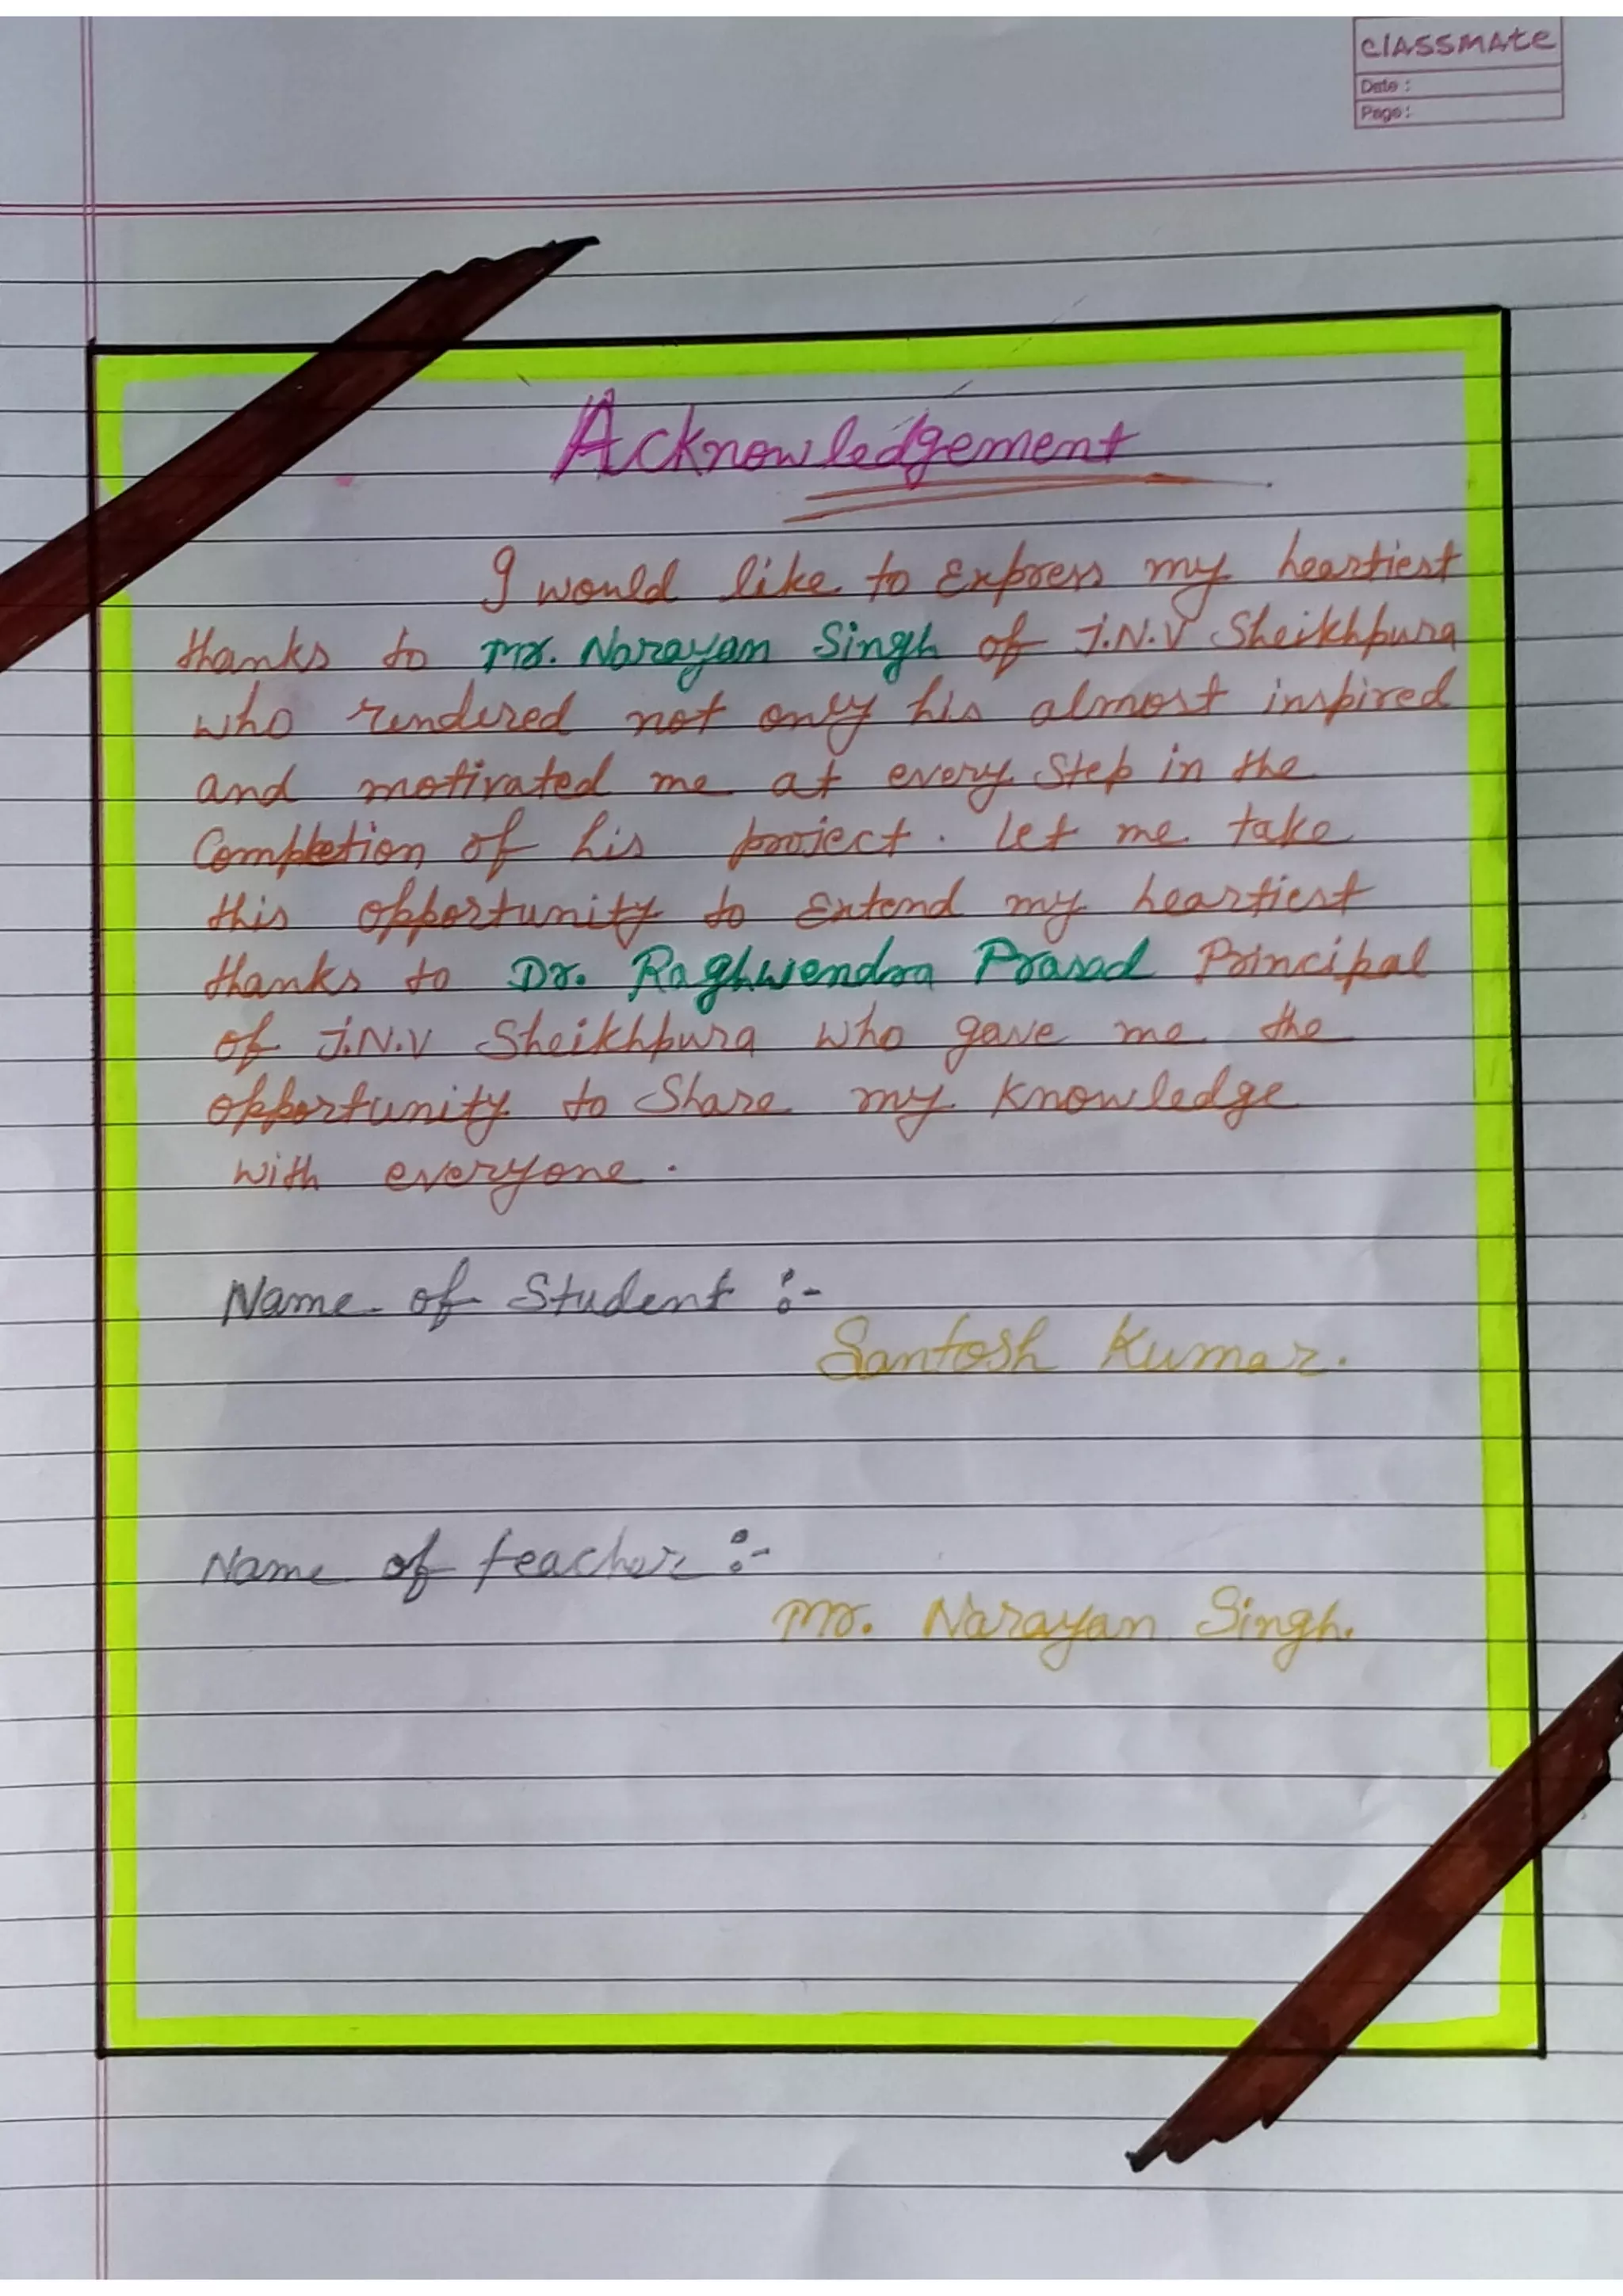 CLASSMATE
Date :
Page :
Acknowledgement
I would like to Express my heartiest
thanks to Mr. Narayan Singh of J.N.V Sheikhpura
who rendered not only his almost inspired
and motivated me at every Step in the
Completion of his project. Let me take
this opportunity to Extend my heartiest
thanks to Dr. Raghwendra Prasad Principal
of J.N.V Sheikhpura who gave me the
opportunity to Share my Knowledge
with everyone.
Name of Student :-
Santosh Kumar.
Name of teacher :-
Mr. Narayan Singh.